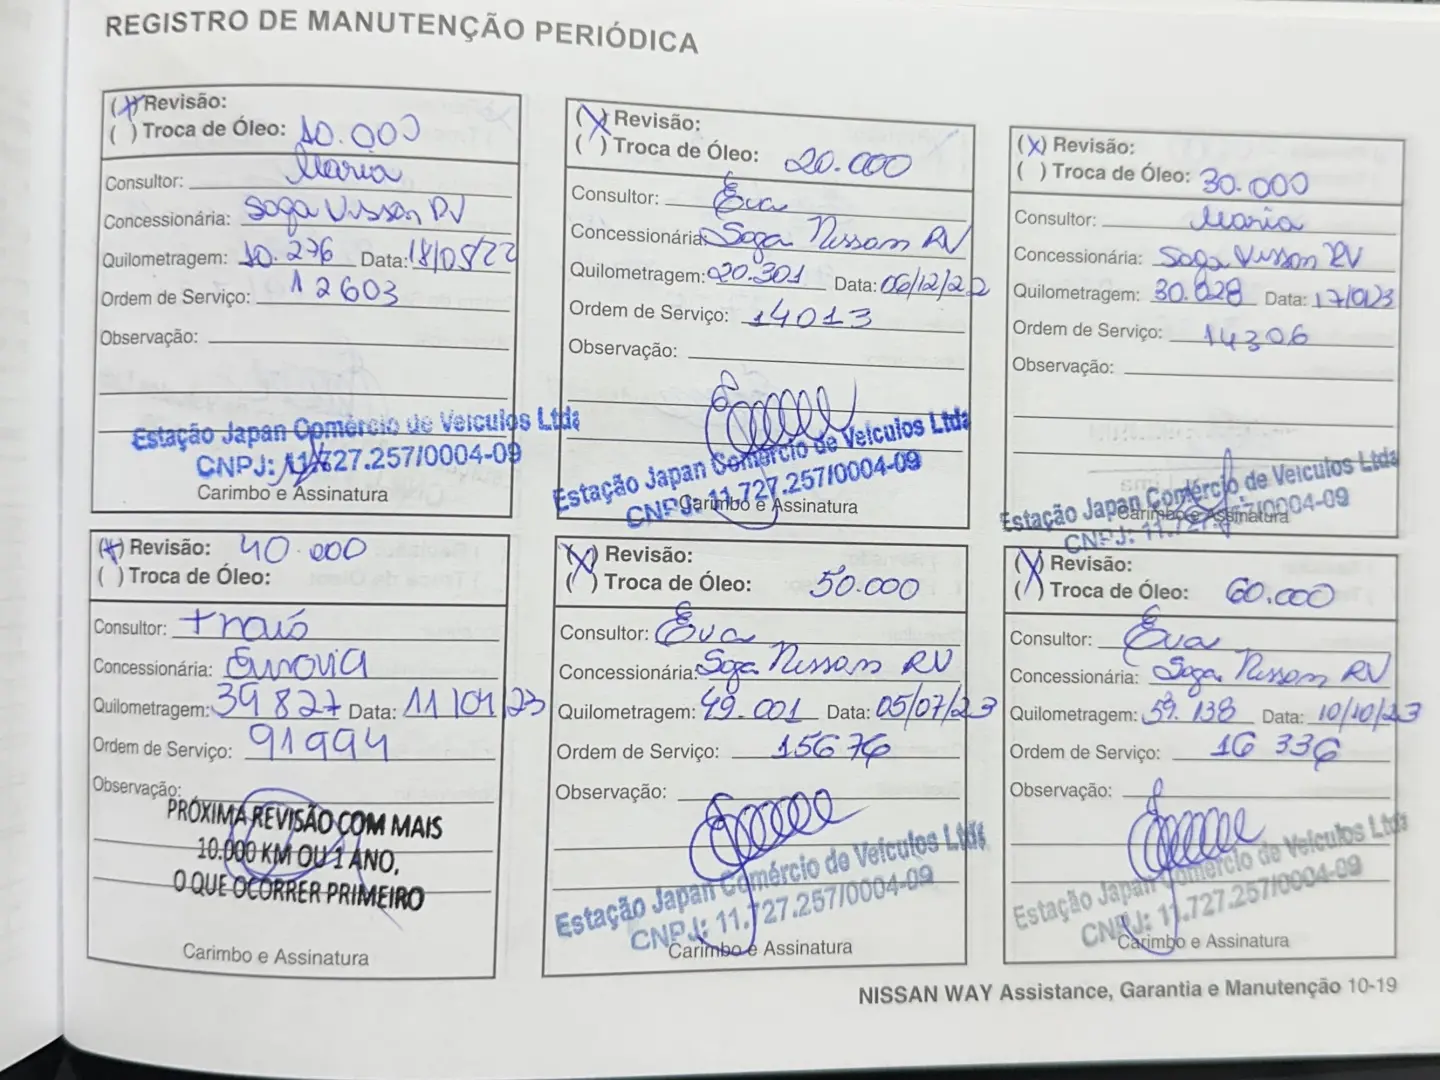 REGISTRO DE MANUTENÇÃO PERIÓDICA
(X) Revisão:
( ) Troca de Óleo: 10.000
Consultor: Maria
Concessionária: Soga Nissan RV
Quilometragem: 10.276 Data: 18/05/22
Ordem de Serviço: 12603
Observação:
Estação Japan Comércio de Veiculos Ltda
CNPJ: 11.727.257/0004-09
Carimbo e Assinatura
(X) Revisão:
( ) Troca de Óleo: 20.000
Consultor: Eva
Concessionária: Soga Nissan RV
Quilometragem: 20.301 Data: 06/12/22
Ordem de Serviço: 14013
Observação:
Estação Japan Comércio de Veiculos Ltda
CNPJ: 11.727.257/0004-09
Carimbo e Assinatura
(X) Revisão:
( ) Troca de Óleo: 30.000
Consultor: Maria
Concessionária: Soga Nissan RV
Quilometragem: 30.828 Data:
Ordem de Serviço: 14306
Observação:
Estação Japan Comércio de Veiculos Ltda
CNPJ: 11.727.257/0004-09
Carimbo e Assinatura
(X) Revisão: 40.000
( ) Troca de Óleo:
Consultor:
Concessionária: Eurovia
Quilometragem: 39827 Data: 11/04/23
Ordem de Serviço: 91994
Observação:
PRÓXIMA REVISÃO COM MAIS
10.000 KM OU 1 ANO,
O QUE OCORRER PRIMEIRO
Carimbo e Assinatura
(X) Revisão:
( ) Troca de Óleo: 50.000
Consultor: Eva
Concessionária: Soga Nissan RV
Quilometragem: 49.001 Data: 05/07/23
Ordem de Serviço: 15676
Observação:
Estação Japan Comércio de Veiculos Ltda
CNPJ: 11.727.257/0004-09
Carimbo e Assinatura
(X) Revisão:
( ) Troca de Óleo: 60.000
Consultor: Eva
Concessionária: Soga Nissan RV
Quilometragem: 59.138 Data: 10/10/23
Ordem de Serviço: 16336
Observação:
Estação Japan Comércio de Veiculos Ltda
CNPJ: 11.727.257/0004-09
Carimbo e Assinatura
NISSAN WAY Assistance, Garantia e Manutenção 10-19